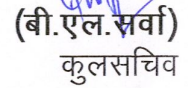 (बी.एल.सर्वा)
कुलसचिव